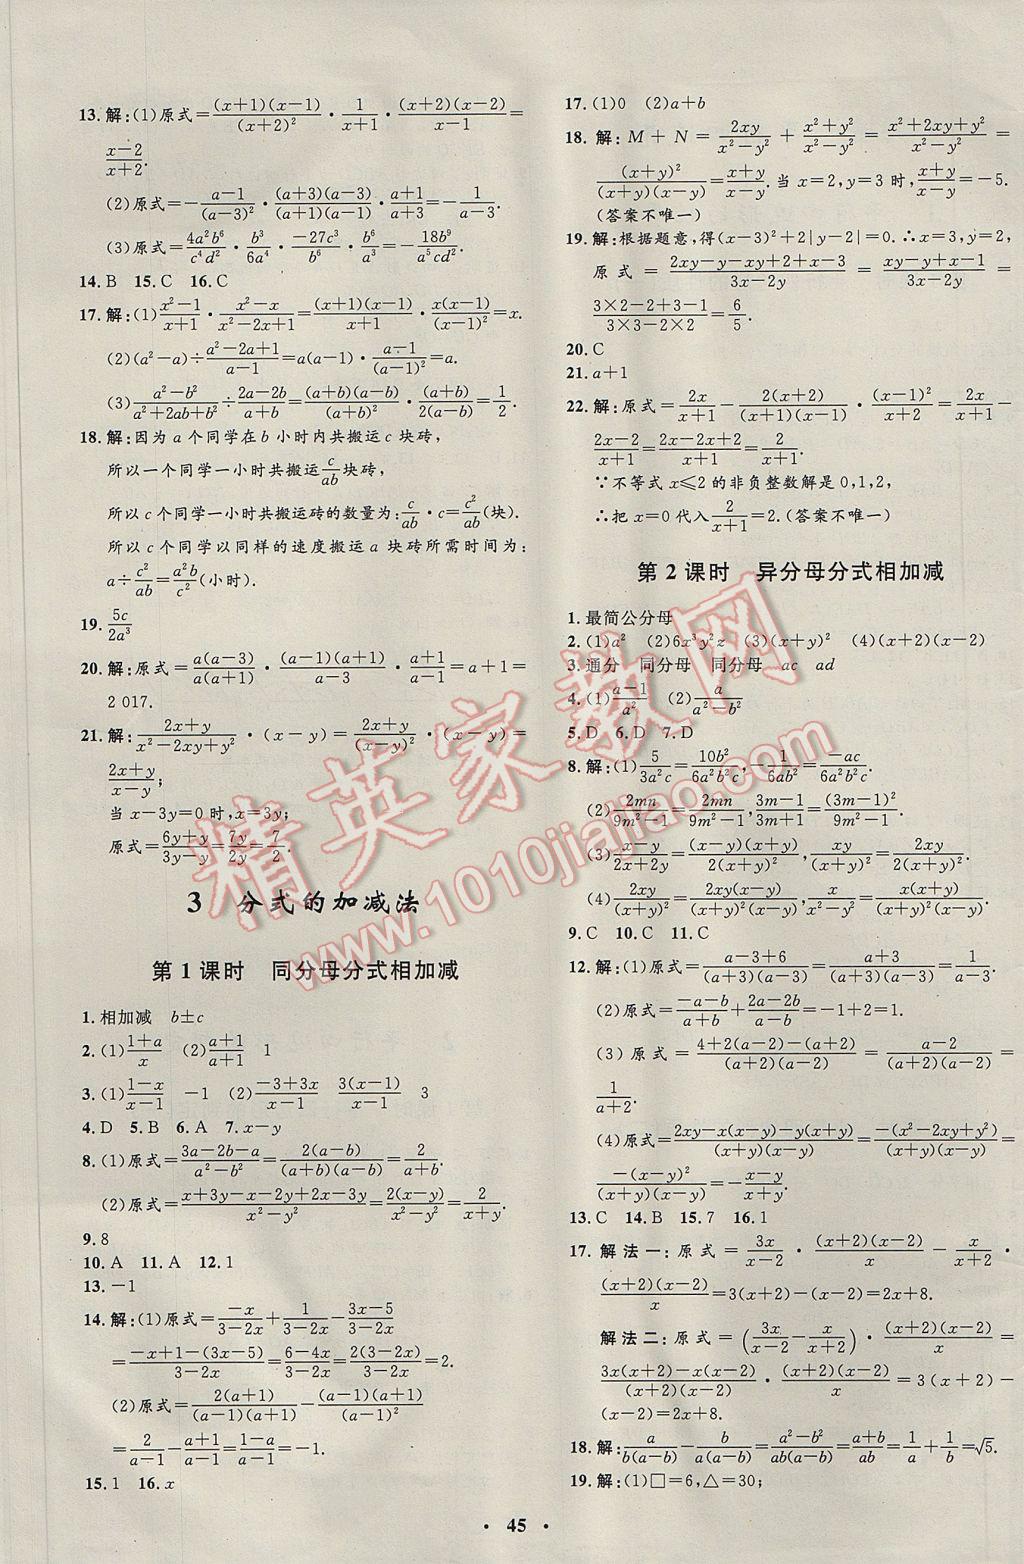 13. 解:(1)原式=(x+1)(x-1)/(x+2)²·1/(x+1)·(x+2)(x-2)/(x-1)=
(x-2)/(x+2).
(2)原式=-(a-1)/(a-3)²·(a+3)(a-3)/(a+1)(a-1)·(a+1)/(a+3)=-1/(a-3).
(3)原式=4a²b⁶/c⁴d²·b³/6a⁴·-27c³/b⁶·b⁶/a³=-18b⁹/a⁵cd².
14. B 15. C 16. C
17. 解:(1)(x²-1)/(x+1)·(x²-x)/(x²-2x+1)=(x+1)(x-1)/(x+1)·x(x-1)/(x-1)²=x.
(2)(a²-a)÷(a²-2a+1)/(a-1)=a(a-1)·(a-1)/(a-1)²=a.
(3)(a²-b²)/(a²+2ab+b²)÷(2a-2b)/(a+b)=(a+b)(a-b)/(a+b)²·(a+b)/2(a-b)=1/2.
18. 解:因为 a 个同学在 b 小时内共搬运 c 块砖,
所以一个同学一小时共搬运c/ab块砖,
所以 c 个同学一小时共搬运砖的数量为:c/ab·c=c²/ab(块).
所以 c 个同学以同样的速度搬运 a 块砖所需时间为:
a÷c²/ab=a²b/c²(小时).
19. 5c/2a³
20. 解:原式=a(a-3)/a(a+1)·(a-1)(a+1)/(a-3)·(a+1)/(a-1)=a+1=
2 017.
21. 解:(2x+y)/(x²-2xy+y²)·(x-y)=(2x+y)/(x-y)²·(x-y)=
(2x+y)/(x-y);
当 x-3y=0时,x=3y;
原式=(6y+y)/(3y-y)=7y/2y=7/2.
3 分式的加减法
第 1 课时 同分母分式相加减
1. 相加减 b±c
2. (1)(1+a)/x (2)(a+1)/(a+1) 1
3. (1)(1-x)/(x-1) -1 (2)(-3+3x)/(x-1) 3(x-1)/(x-1) 3
4. D 5. B 6. A 7. x-y
8. (1)原式=(3a-2b-a)/(a²-b²)=2(a-b)/(a+b)(a-b)=2/(a+b).
(2)原式=(x+3y-x-2y+2x-3y)/(x²-y²)=2(x-y)/(x²-y²)=2/(x+y).
9. 8
10. A 11. A 12. 1
13. -1
14. 解:(1)原式=-x/(3-2x)+1/(3-2x)-(3x-5)/(3-2x)
=(-x+1-(3x-5))/(3-2x)=(6-4x)/(3-2x)=2(3-2x)/(3-2x)=2.
(2)原式=2(a+1)/(a-1)(a+1)-(a+1)(a-1)/(a-1)²
=2/(a-1)-(a+1)/(a-1)=(1-a)/(a-1)=-1.
15. 1 16. x
17. (1)0 (2)a+b
18. 解:M+N=2xy/(x²-y²)+(x²+y²)/(x²-y²)=(x²+2xy+y²)/(x²-y²)=
(x+y)²/(x+y)(x-y)=(x+y)/(x-y).当 x=2,y=3 时,(x+y)/(x-y)=-5.
(答案不唯一)
19. 解:根据题意,得(x-3)²+2|y-2|=0.∴x=3,y=2,
原式=(2xy-y-xy+2+x-3)/(3x-2y)=(xy-y+x-1)/(3x-2y)=
(3×2-2+3-1)/(3×3-2×2)=6/5.
20. C
21. a+1
22. 解:原式=2x/(x+1)-2(x+2)/(x+1)(x-1)·(x-1)²/(x+2)=2x/(x+1)-
(2x-2)/(x+1)=(2x-2x+2)/(x+1)=2/(x+1).
∵不等式 x≤2 的非负整数解是 0,1,2,
∴把 x=0 代入2/(x+1)=2.(答案不唯一)
第 2 课时 异分母分式相加减
1. 最简公分母
2. (1)a² (2)6x³y²z (3)(x+y)² (4)(x+2)(x-2)
3. 通分 同分母 同分母 ac ad
4. (1)(a-1)/a² (2)a/(a²-b²)
5. D 6. D 7. D
8. 解:(1)5/3a²c=10b²/6a²b²c,-1/6ab²=-ac/6a²b²c.
(2)2mn/(9m²-1)=2mn/(9m²-1),(3m-1)/(3m+1)=(3m-1)²/(9m²-1).
(3)(x-y)/(2x+2y)=(x-y)(x+y)/2(x+y)²,xy/(x+y)²=2xy/2(x+y)².
(4)2xy/(x+y)²=2xy(x-y)/(x+y)²(x-y),x/(x²-y²)=x(x+y)/(x+y)²(x-y).
9. C 10. C 11. C
12. 解:(1)原式=(a-3+6)/(a+3)(a-3)=(a+3)/(a+3)(a-3)=1/(a-3).
(2)原式=(-a-b)/(a+b)+(2a-2b)/(a-b)=-1+2=1.
(3)原式=(4+2(a-2)-(a+2))/(a+2)(a-2)=(a-2)/(a+2)(a-2)=
1/(a+2).
(4)原式=(2xy-x(x-y)-y(x+y))/(x+y)(x-y)=-(x²-2xy+y²)/(x+y)(x-y)=
-(x-y)²/(x+y)(x-y)=-(x-y)/(x+y).
13. C 14. B 15. 7 16. 1
17. 解法一:原式=3x/(x-2)·(x+2)(x-2)/x-x/(x+2)·
(x+2)(x-2)/x=3(x+2)-(x-2)=2x+8.
解法二:原式=(3x/(x-2)-x/(x+2))·(x+2)(x-2)/x=
(3x(x+2)-x(x-2))/(x-2)(x+2)·(x+2)(x-2)/x=3(x+2)-
(x-2)=2x+8.
18. 解:a/b(a-b)-b/a(a-b)=(a²-b²)/ab(a-b)=(a+b)/ab=1/a+1/b=√5.
19. 解:(1)□=6,△=30;
• 45 •
精英家教网
www.1010jiajiao.com